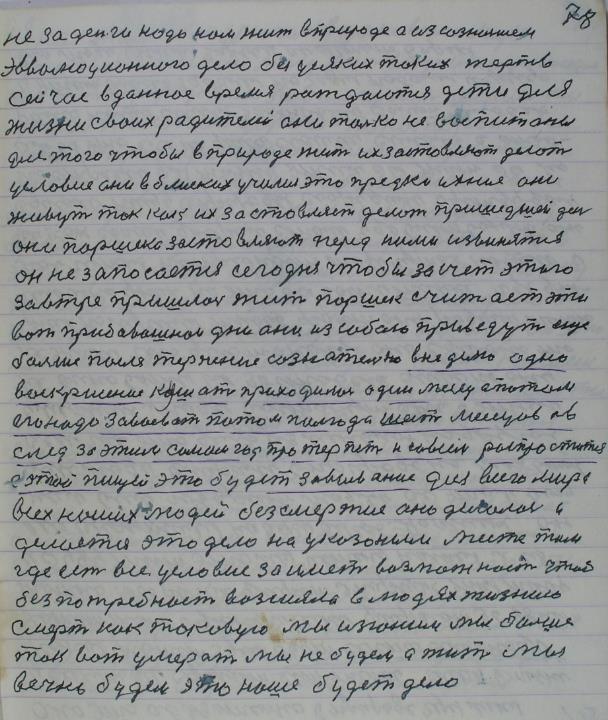 78
не за денги надо нам жит в природе а из сознанием
эвволюционного дело без усяких таких жертв
сейчас в данное время рождаются дети для
жизни своих радителей они толко не воспитаны
для того чтобы в природе жит их заставляют делат
условие они в близких училися это предки ихние они
живут так как их заставляет делат пришедшей ден
они паршека заставляют перед ними извинятися
он не запасается сегодня чтобы за счет этого
завтре пришлос жит паршек считает эти
вот прибавашном дни они из собою приведут еще
болше поля терчение сознателно в неделю одно
воскрисение кушат приходилос один месец а потом
его надо заваеват потом полгода шест месецов а в
след за этим самом год протерпет и совсем распростится
с этай пищей это будет завывание для всего мира
всех наших людей безсмертие оно делалос и
делается это дело на указоным месте там
где ест все условие заимет возможност чтоб
без потребност возсияла в людях жизню
смерт как таковую мы изгоним мы болше
так вот умират мы не будем а жит мы
вечнь будем это наше будет дело